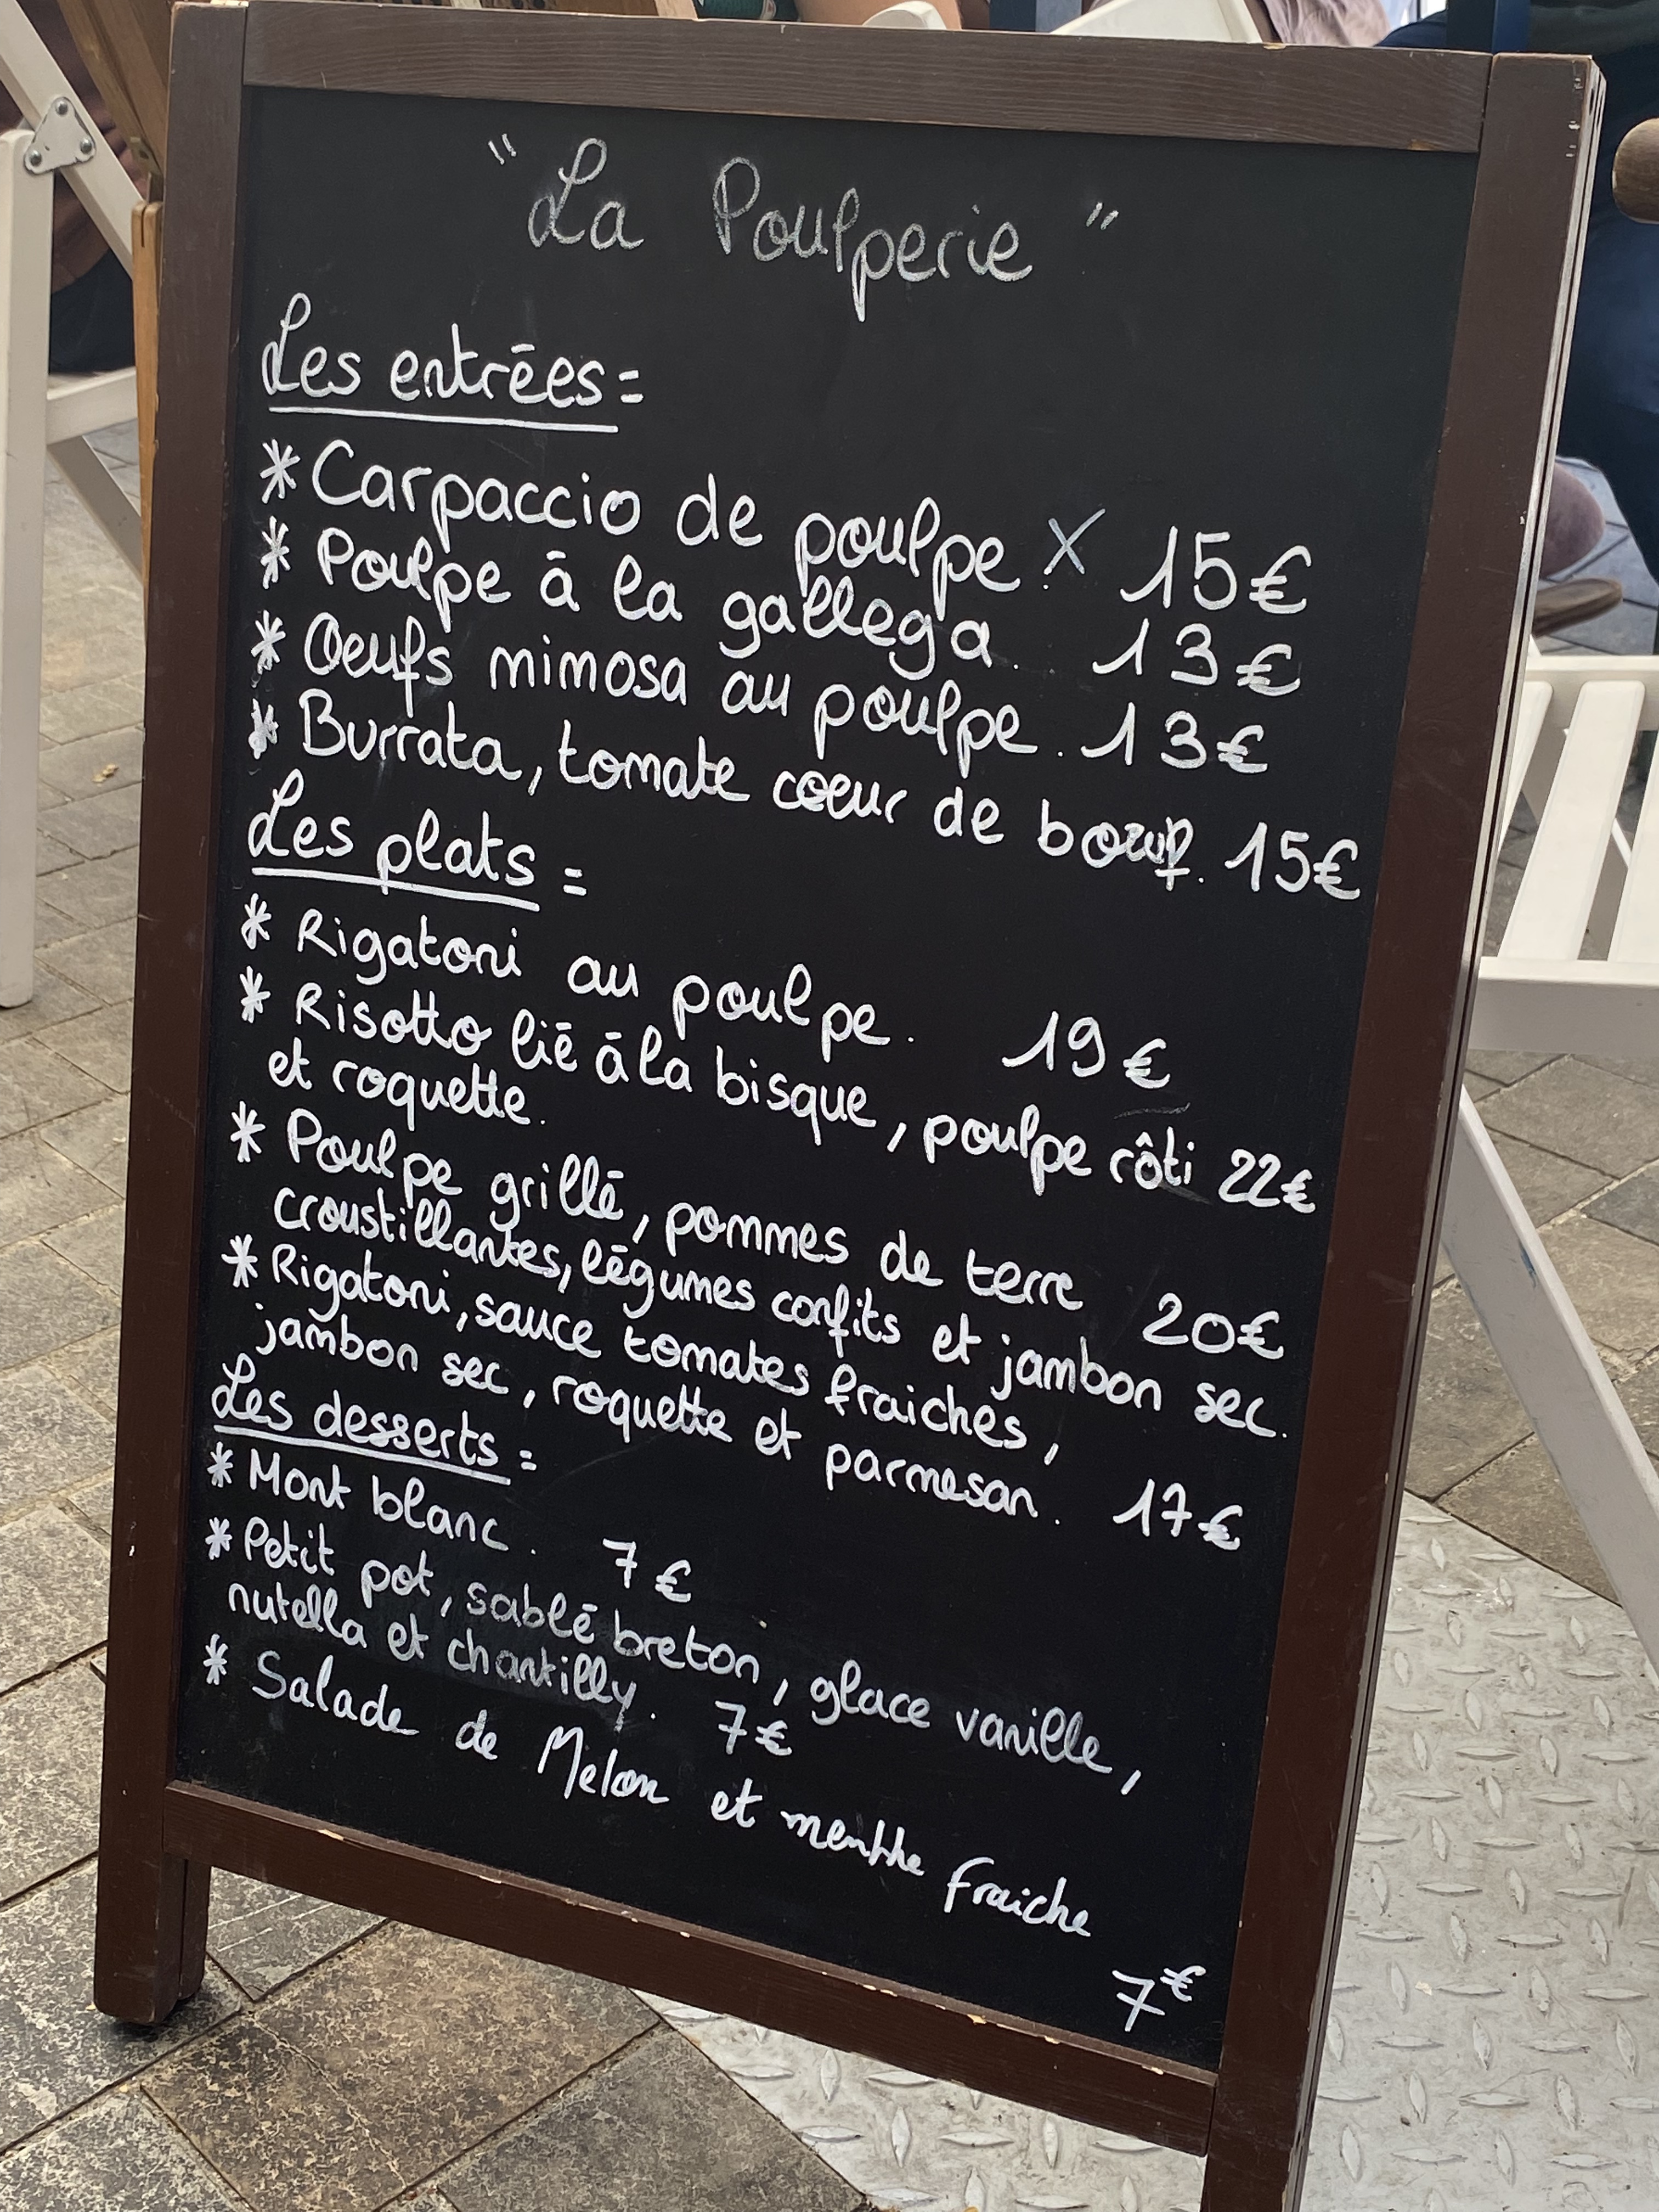 "La Poulperie"
Les entrées=
* Carpaccio de poulpe. X 15€
* Poulpe à la gallega. 13€
* Oeufs mimosa au poulpe. 13€
* Burrata, tomate coeur de boeuf. 15€
Les plats =
* Rigatoni au poulpe. 19€
* Risotto lié à la bisque, poulpe rôti 22€
et roquette.
* Poulpe grillé, pommes de terre 20€
croustillantes, légumes confits et jambon sec.
* Rigatoni, sauce tomates fraiches,
jambon sec, roquette et parmesan. 17€
Les desserts =
* Mont blanc. 7€
* Petit pot, sablé breton, glace vanille,
nutella et chantilly. 7€
* Salade de Melon et menthe fraiche
7€